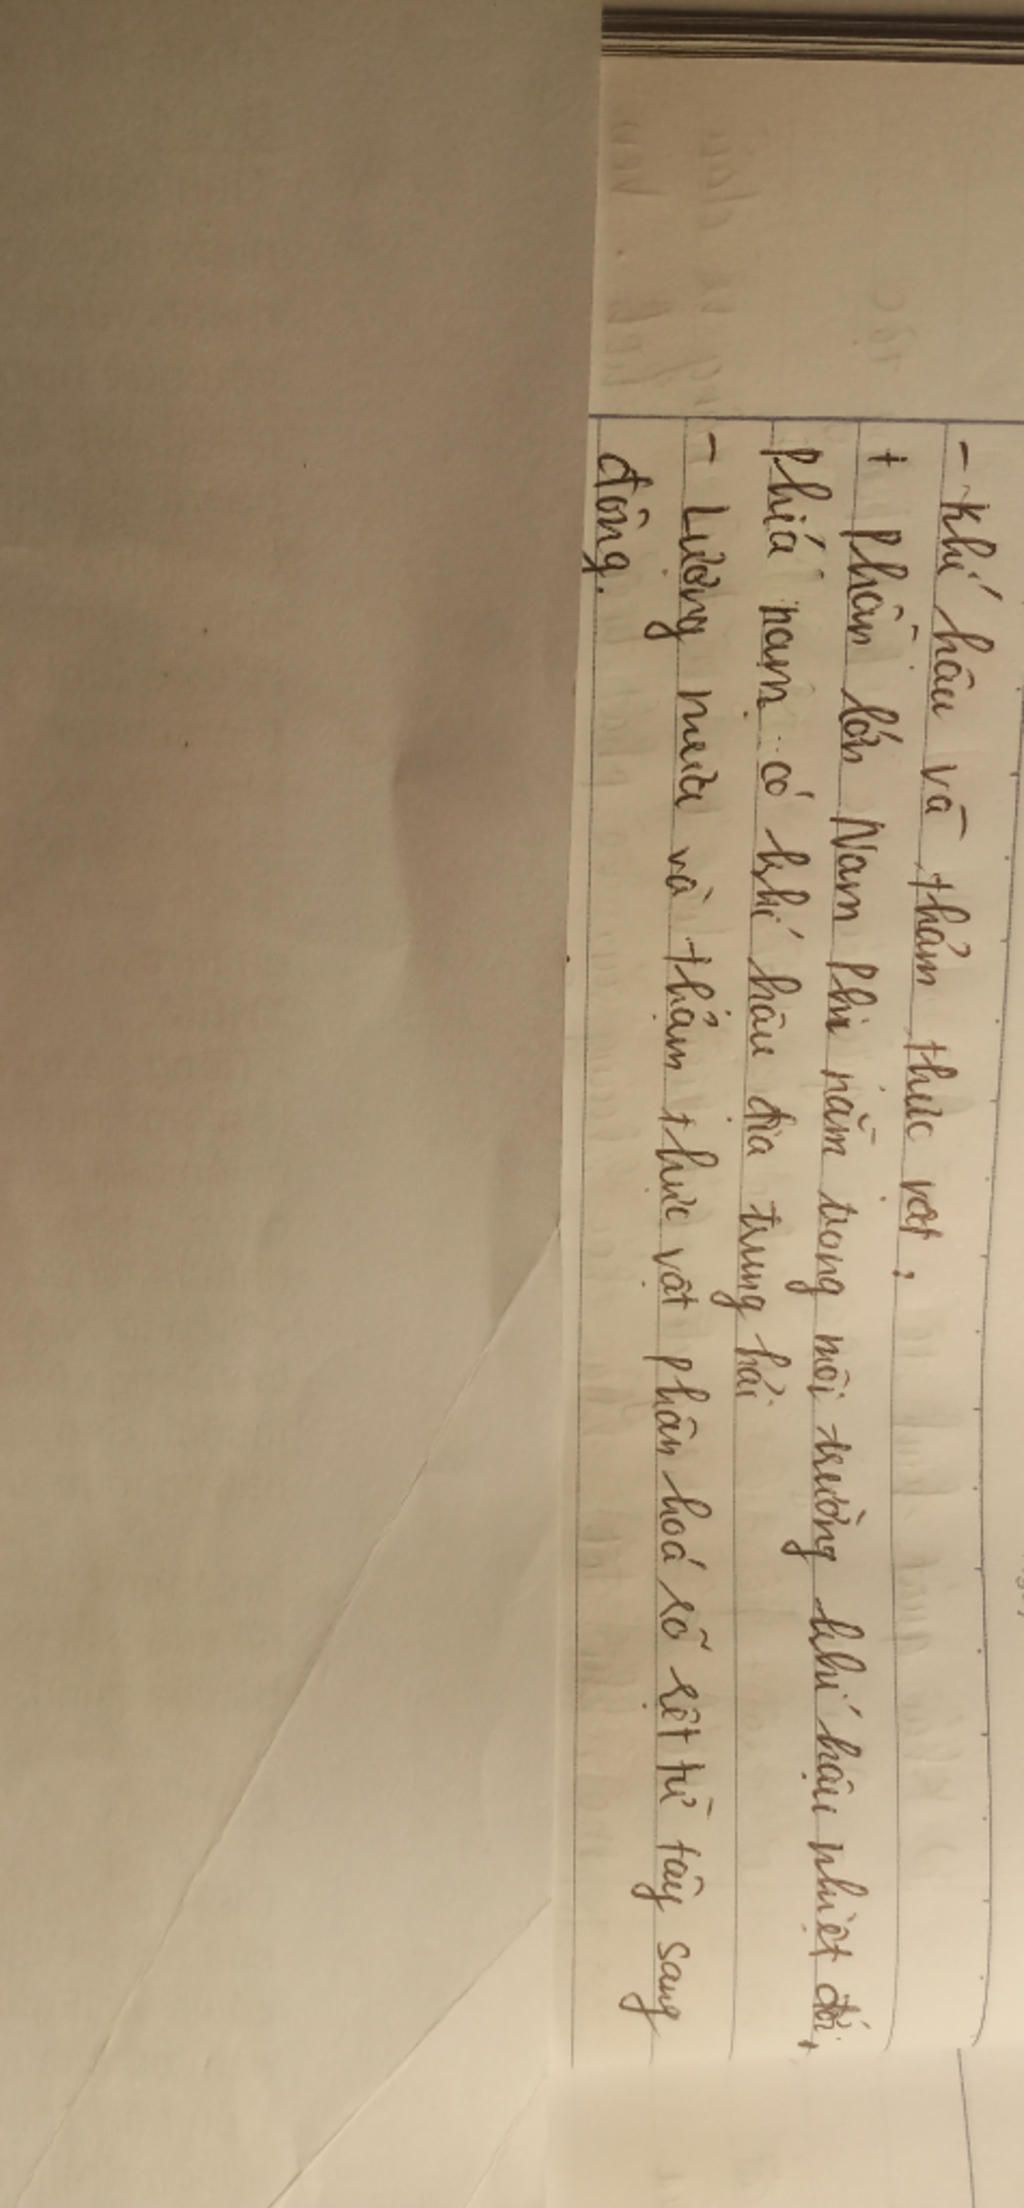 - Khí hậu và thảm thực vật:
+ Phần lớn Nam Phi nằm trong môi trường khí hậu nhiệt đới,
phía nam có khí hậu địa trung hải
- Lượng mưa và thảm thực vật phân hoá rõ rệt từ tây sang
đông.